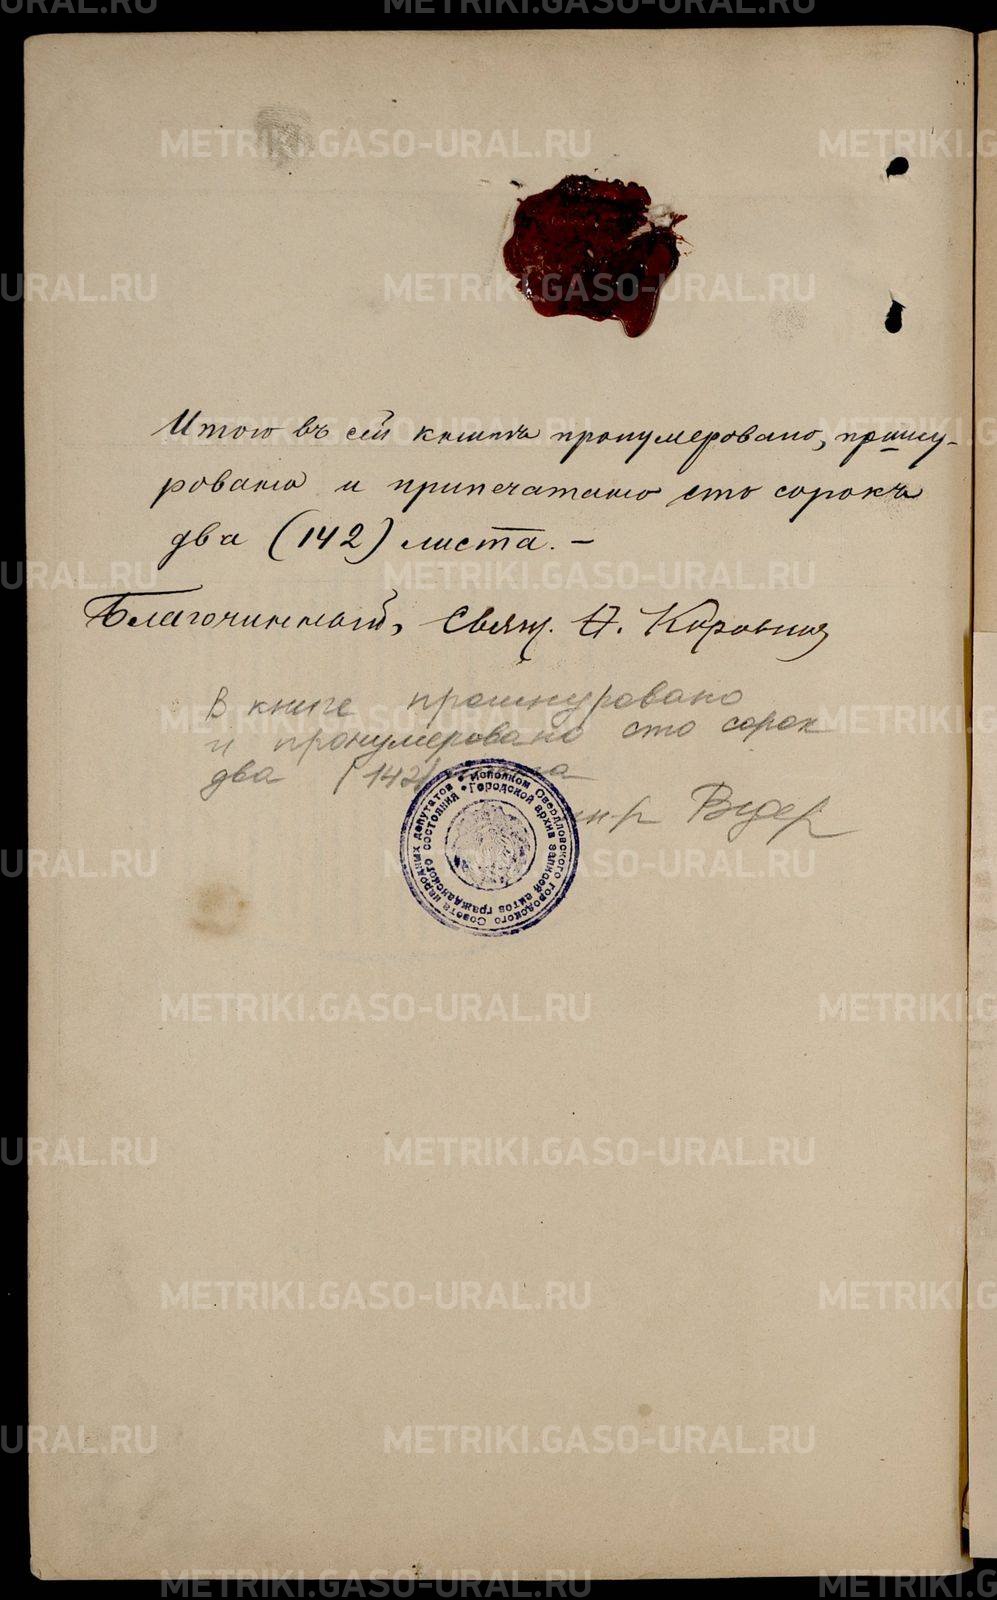 Итого въ сей книгѣ пронумеровано, прошну-
ровано и припечатано сто сорокъ
два (142) листа. –
Благочинный, Свящ. А. Коровин
В книге прошнуровано
и пронумеровано сто сорок
два (142)
Исполком Свердловского городского Совета народных депутатов
Городской архив записей актов гражданского состояния
METRIKI.GASO-URAL.RU